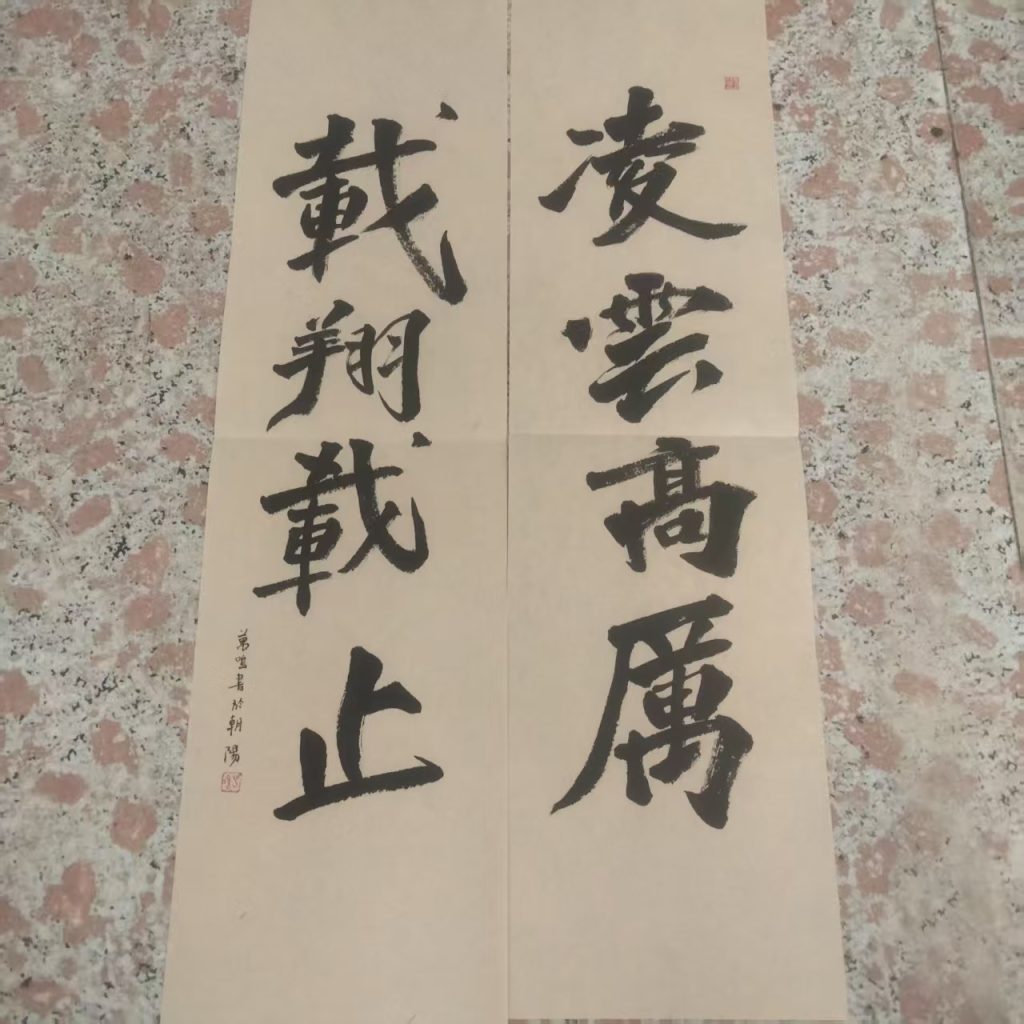 凌雲高厲
載翔載止
萬 書於朝陽